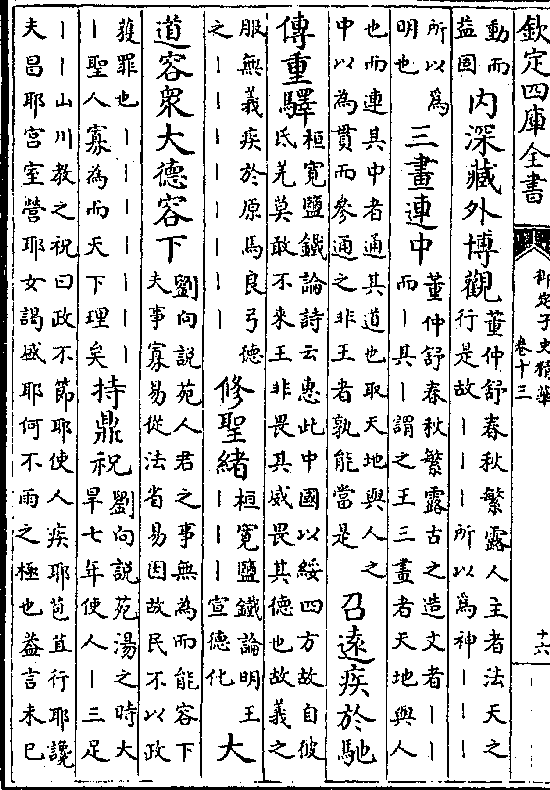 欽定四庫全書
御定子史精華
卷十三
十六
動而
益固
內深藏外博觀
董仲舒春秋繁露人主者法天之
行是故丨丨丨所以為神丨丨丨
所以為
明也
三畫連中
董仲舒春秋繁露古之造文者丨丨
而丨其丨謂之王三畫者天地與人
也而連其中者通其道也取天地與人之
中以為貫而參通之非王者孰能當是
召遠疾於馳
傳重驛
桓寬鹽鐵論詩云惠此中國以綏四方故自彼
氐羌莫敢不來王非畏其威畏其德也故義之
服無義疾於原馬良弓德
之丨丨丨丨丨丨丨丨
修聖緒
桓寬鹽鐵論明王
丨丨丨宣德化
大
道容衆大德容下
劉向說苑人君之事無為而能容下
夫事寡易從法省易因故民不以政
獲罪也丨丨丨丨丨丨丨
丨聖人寡為而天下理矣
持鼎祝
劉向說苑湯之時大
旱七年使人丨三足
丨丨山川教之祝曰政不節耶使人疾耶苞苴行耶讒
夫昌耶宮室營耶女謁盛耶何不雨之極也蓋言未已